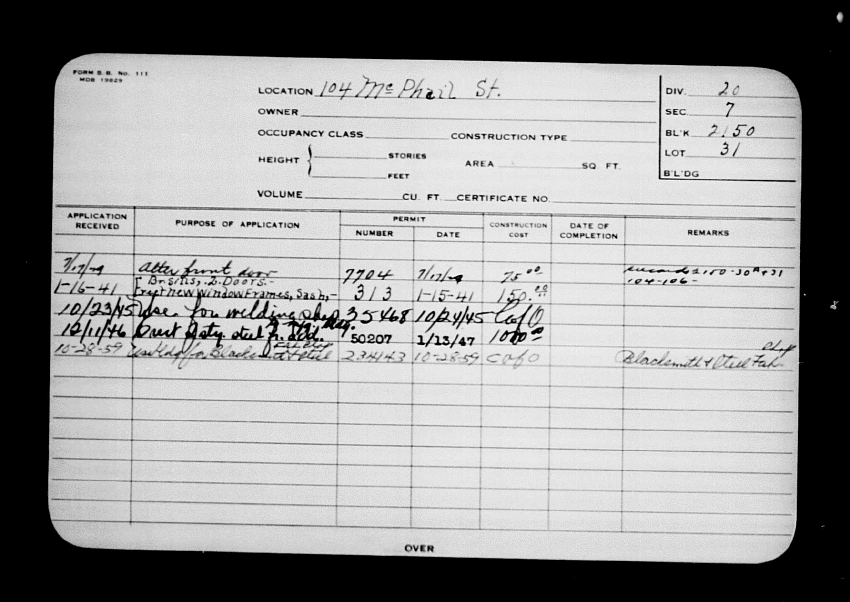 FORM S.B. No. 111
MDB 19829
LOCATION 104 Mc Phail St.
DIV. 20
OWNER
SEC. 7
OCCUPANCY CLASS CONSTRUCTION TYPE
BL'K 2150
HEIGHT { STORIES AREA SQ. FT.
LOT 31
FEET
B'L'DG
VOLUME CU. FT. CERTIFICATE NO.
APPLICATION RECEIVED PURPOSE OF APPLICATION PERMIT NUMBER DATE CONSTRUCTION COST DATE OF COMPLETION REMARKS
7/17/29 Alter front door 7704 7/17/29 75 00 records 2150-30 & 31
104-106-
Br. Sills, 2 Doors.-
1-16-41 Erect New Window Frames, Sash,- 313 1-15-41 150.00
10/23/45 Use for welding shop 35468 10/24/45 C of O
12/11/46 Erect steel 50207 1/13/47 1000 00
10-28-59 Use bldg for Blacksmith & steel 23443 10-28-59 C of O Blacksmith & Steel Fab. shop
OVER